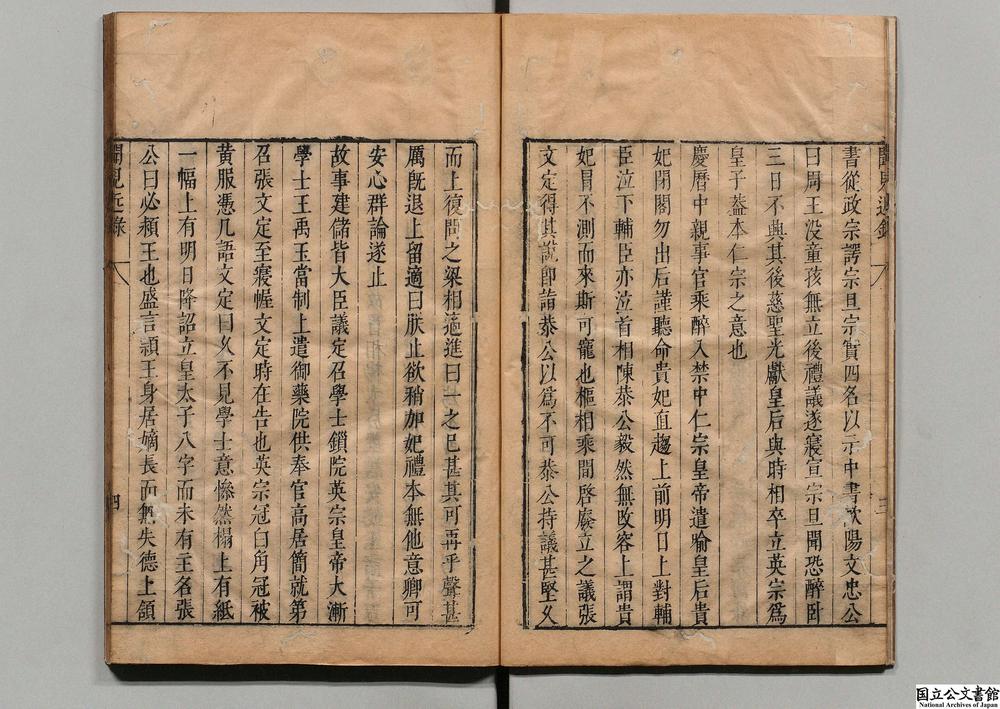 聞見近錄
三
書從政宗諤宗旦宗實四名以示中書歐陽文忠公
曰周王没童孩無立後禮議遂寢宣宗旦聞恐醉卧
三日不與其後慈聖光獻皇后與時相卒立英宗爲
皇子葢本仁宗之意也
慶曆中親事官乘醉入禁中仁宗皇帝遣喻皇后貴
妃閉閣勿出后謹聽命貴妃直趨上前明日上對輔
臣泣下輔臣亦泣首相陳恭公毅然無改容上謂貴
妃冒不測而來斯可寵也樞相乘間啓廢立之議張
文定得其說即詣恭公以爲不可恭公持議甚堅久
而上復問之梁相適進曰一之已甚其可再乎聲甚
厲旣退上留適曰朕止欲稍加妃禮本無他意卿可
安心群論遂止
故事建儲皆大臣議定召學士鎖院英宗皇帝大漸
學士王禹玉當制上遣御藥院供奉官高居簡就第
召張文定至寢幄文定時在告也英宗冠白角冠被
黃服憑几語文定曰久不見學士意慘然榻上有紙
一幅上有明日降詔立皇太子八字而未有主名張
公曰必潁王也盛言潁王身居嫡長而無失德上頷
聞見近錄
四
国立公文書館
National Archives of Japan